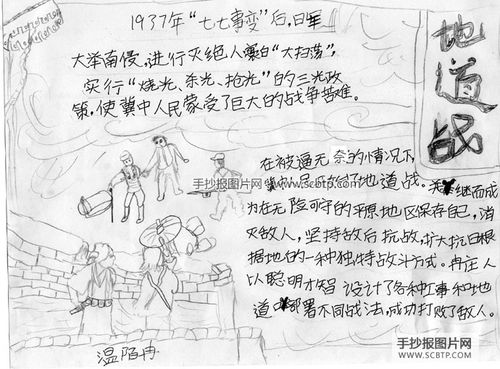 1937年“七七事变”后，日军
大举南侵，进行灭绝人寰的“大扫荡”，
实行“烧光、杀光、抢光”的三光政
策，使冀中人民蒙受了巨大的战争苦难。
地道战
在被逼无奈的情况下，
手抄报图片网 www.scbtp.com
地道战。
继而成
为在无险可守的平原地区保存自己，消
灭敌人，坚持敌后抗战，扩大抗日根
据地的一种独特战斗方式。冉庄人
以聪明才智设计了各种工事和地
道中部署不同战法，成功打败了敌人。
温陌冉
手抄报图片网
WWW.SCBTP.COM